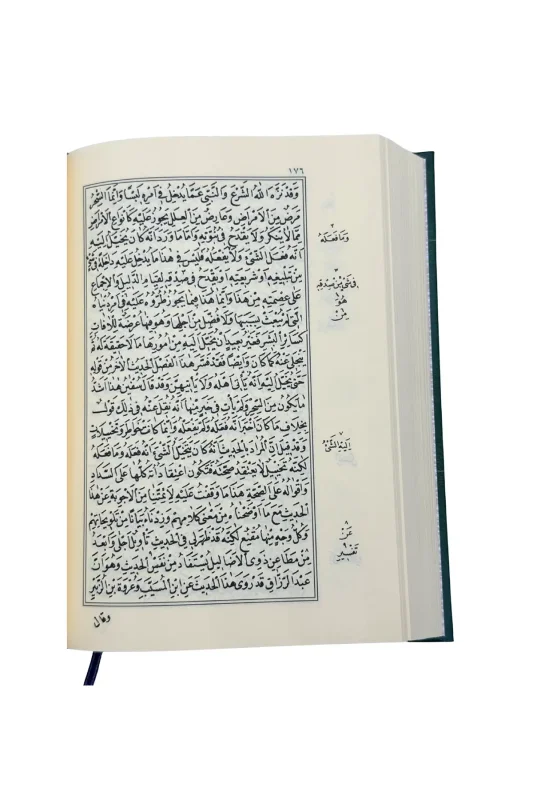 ١٧٦
وَقَدْ نَزَّهَ اللهُ الشَّرْعَ وَالنَّبِيَّ عَمَّا يُدْخِلُ فِي أَمْرِهِ لَبْسًا وَإِنَّمَا السِّحْرُ
مَرَضٌ مِنَ الْأَمْرَاضِ وَعَارِضٌ مِنَ الْعِلَلِ يَجُوزُ عَلَيْهِ كَأَنْوَاعِ الْأَمْرَاضِ
مِمَّا لَا يُنْكَرُ وَلَا يَقْدَحُ فِي نُبُوَّتِهِ وَأَمَّا مَا وَرَدَ أَنَّهُ كَانَ يُخَيَّلُ إِلَيْهِ
أَنَّهُ فَعَلَ الشَّيْءَ وَلَا يَفْعَلُهُ فَلَيْسَ فِي هٰذَا مَا يُدْخِلُ عَلَيْهِ دَاخِلَةً فِي
مِنْ تَبْلِيغِهِ أَوْ شَرِيعَتِهِ أَوْ يَقْدَحُ فِي صِدْقِهِ لِقِيَامِ الدَّلِيلِ وَالْإِجْمَاعِ
عَلَى عِصْمَتِهِ مِنْ هٰذَا وَإِنَّمَا هٰذَا فِيمَا يَجُوزُ طُرُوُّهُ عَلَيْهِ فِي أَمْرِ دُنْيَاهُ
الَّتِي لَمْ يُبْعَثْ بِسَبَبِهَا وَلَا فُضِّلَ مِنْ أَجْلِهَا وَهُوَ فِيهَا عُرْضَةٌ لِلْآفَاتِ
كَسَائِرِ الْبَشَرِ فَغَيْرُ بَعِيدٍ أَنْ يُخَيَّلَ إِلَيْهِ مِنْ أُمُورِهَا مَا لَا حَقِيقَةَ لَهُ ثُمَّ
يَنْجَلِي عَنْهُ كَمَا كَانَ وَأَيْضًا فَقَدْ فَسَّرَ هٰذَا الْفَصْلَ الْحَدِيثُ الْآخَرُ مِنْ قَوْلِهِ
حَتَّى يُخَيَّلَ إِلَيْهِ أَنَّهُ يَأْتِي أَهْلَهُ وَلَا يَأْتِيهِنَّ وَقَدْ قَالَ سُفْيٰنُ هٰذَا أَشَدُّ
مَا يَكُونُ مِنَ السِّحْرِ وَلَمْ يَأْتِ فِي خَبَرٍ مِنْهَا أَنَّهُ نُقِلَ عَنْهُ فِي ذٰلِكَ قَوْلٌ
بِخِلَافِ مَا كَانَ أَخْبَرَ أَنَّهُ فَعَلَهُ وَلَمْ يَفْعَلْهُ وَإِنَّمَا كَانَتْ خَوَاطِرَ وَتَخْيِيلَاتٍ
وَقَدْ قِيلَ إِنَّ الْمُرَادَ بِالْحَدِيثِ أَنَّهُ كَانَ يَتَخَيَّلُ الشَّيْءَ أَنَّهُ فَعَلَهُ وَمَا فَعَلَهُ
لٰكِنَّهُ تَخْيِيلٌ لَا يَعْتَقِدُ صِحَّتَهُ فَتَكُونُ اعْتِقَادَاتُهُ كُلُّهَا عَلَى السَّدَادِ
وَأَقْوَالُهُ عَلَى الصِّحَّةِ هٰذَا مَا وَقَفْتُ عَلَيْهِ لِأَئِمَّتِنَا مِنَ الْأَجْوِبَةِ عَنْ هٰذَا
الْحَدِيثِ مَعَ مَا أَوْضَحْنَاهُ مِنْ مَعْنَى كَلَامِهِمْ وَزِدْنَاهُ بَيَانًا مِنْ تَلْوِيحَاتِهِمْ
وَكُلُّ وَجْهٍ مِنْهَا مُقْنِعٌ لٰكِنَّهُ قَدْ ظَهَرَ لِي فِي الْحَدِيثِ تَأْوِيلٌ أَجْلَى وَأَبْعَدُ
مِنْ مَطَاعِنِ ذَوِي الْأَضَالِيلِ يُسْتَفَادُ مِنْ نَفْسِ الْحَدِيثِ وَهُوَ أَنَّ
عَبْدَ الرَّزَّاقِ قَدْ رَوَى هٰذَا الْحَدِيثَ عَنِ ابْنِ الْمُسَيَّبِ وَعُرْوَةَ بْنِ الزُّبَيْرِ
وَقَالَ
٢
وَمَا فَعَلَهُ
هُوَ
مِنْ
٧
إِلَيْهِ الشَّيْءُ
٨
عَنْ
٩